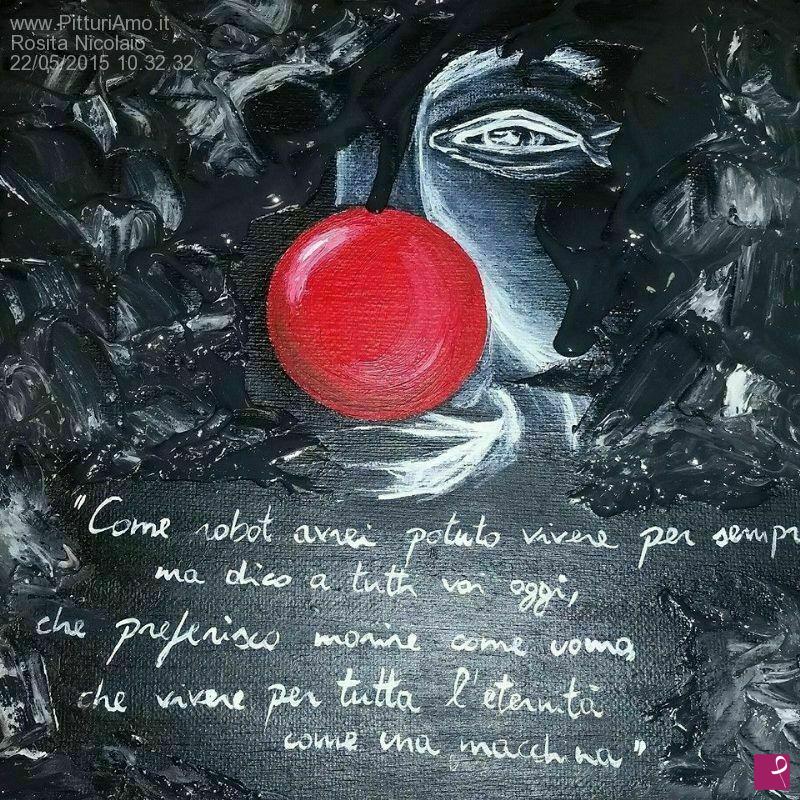 www.PitturiAmo.it
Rosita Nicolaio
22/05/2015 10.32.32
"Come robot avrei potuto vivere per sempr
ma dico a tutti voi oggi,
che preferisco morire come uomo,
che vivere per tutta l'eternità
come una macchina"